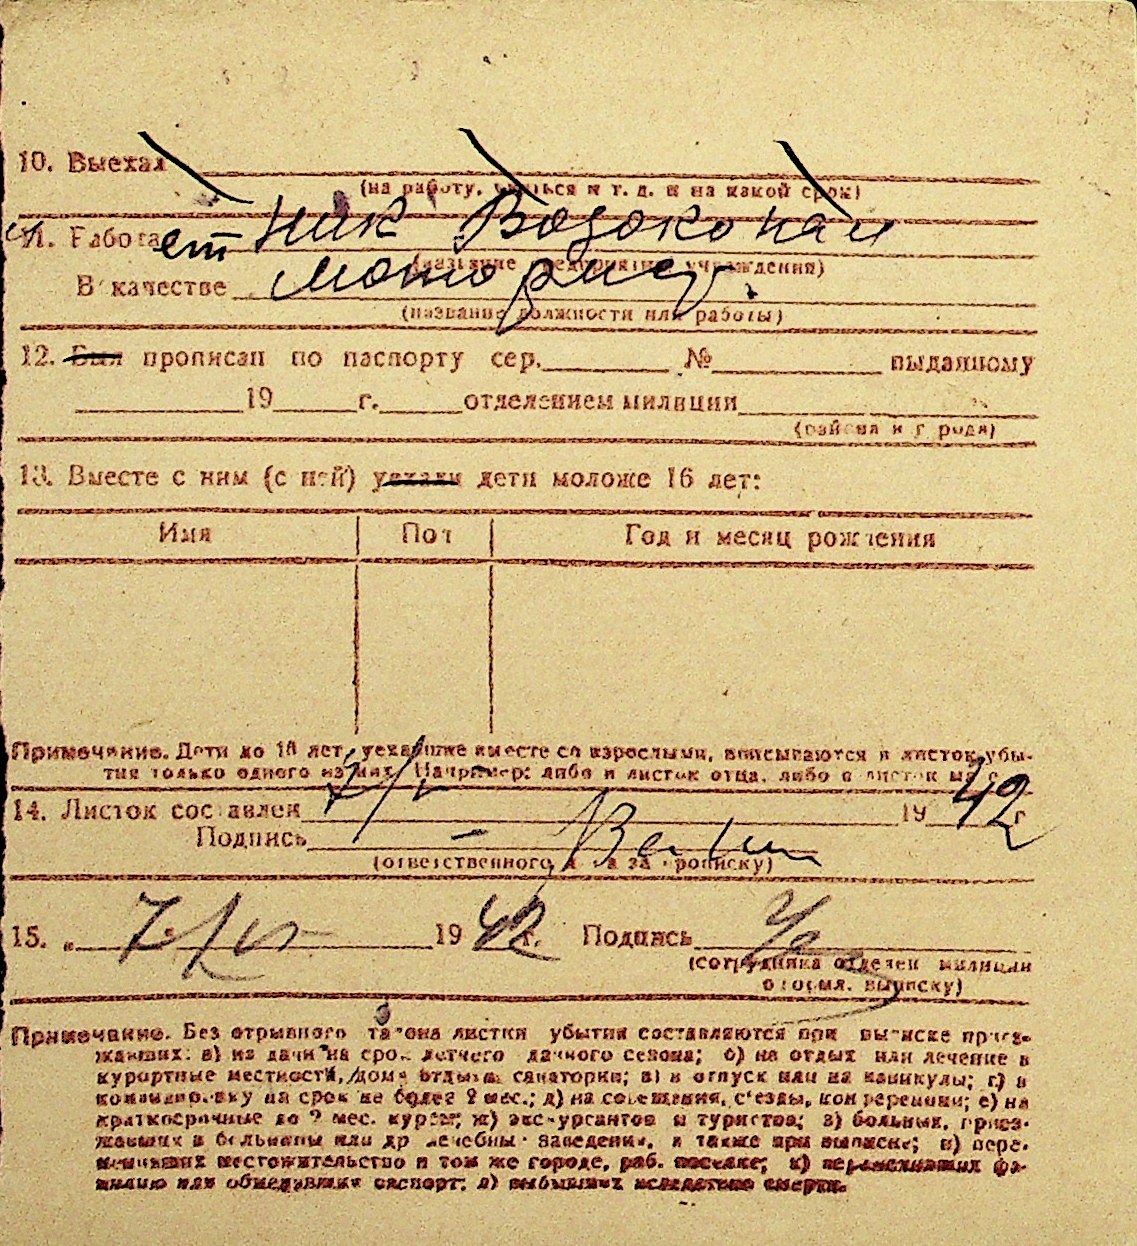 10. Выехал
(на работу, учиться и т. д. и на какой срок)
11. Работает ник Водоканал
(название предприятия учреждения)
В качестве моторист.
(название должности или работы)
12. Был прописан по паспорту сер. № выданному
19 г. отделением милиции
(района и города)
13. Вместе с ним (с ней) уехали дети моложе 16 лет:
Имя Пол Год и месяц рождения
Примечание. Дети до 16 лет, уехавшие вместе со взрослыми, вписываются в листок убы-
тия только одного из них. Например: либо в листок отца, либо в листок
14. Листок составлен 1942 г.
Подпись
(ответственного за прописку)
15. „ 7 1942 г. Подпись
(сотрудника отделен милиции
оформл. выписку)
Примечание. Без отрывного талона листки убытия составляются при выписке приез-
жавших: а) из дачи на срок летнего дачного сезона; б) на отдых или лечение в
курортные местности, дома отдыха санатории; в) в отпуск или на каникулы; г) в
командировку на срок не более 2 мес.; д) на совещания, с'езды, конференции; е) на
краткосрочные до 2 мес. курсы; ж) экскурсантов и туристов; з) больных, приез-
жавших в больницы или др лечебны заведения, а также при выписке; и) пере-
менивших местожительство в том же городе, раб. поселке; к) переменивших фа-
милию или обменявших паспорт; л) выбывших вследствие смерти.